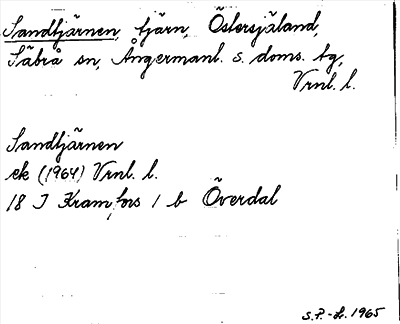 Sandtjärnen, tjärn, Östersjäland,
Säbrå sn, Ångermanl. s. doms. tg,
Vrnl. l.
Sandtjärnen
ek (1964) Vrnl. l.
18 I Kramfors 1 b Överdal
S.P.-L. 1965